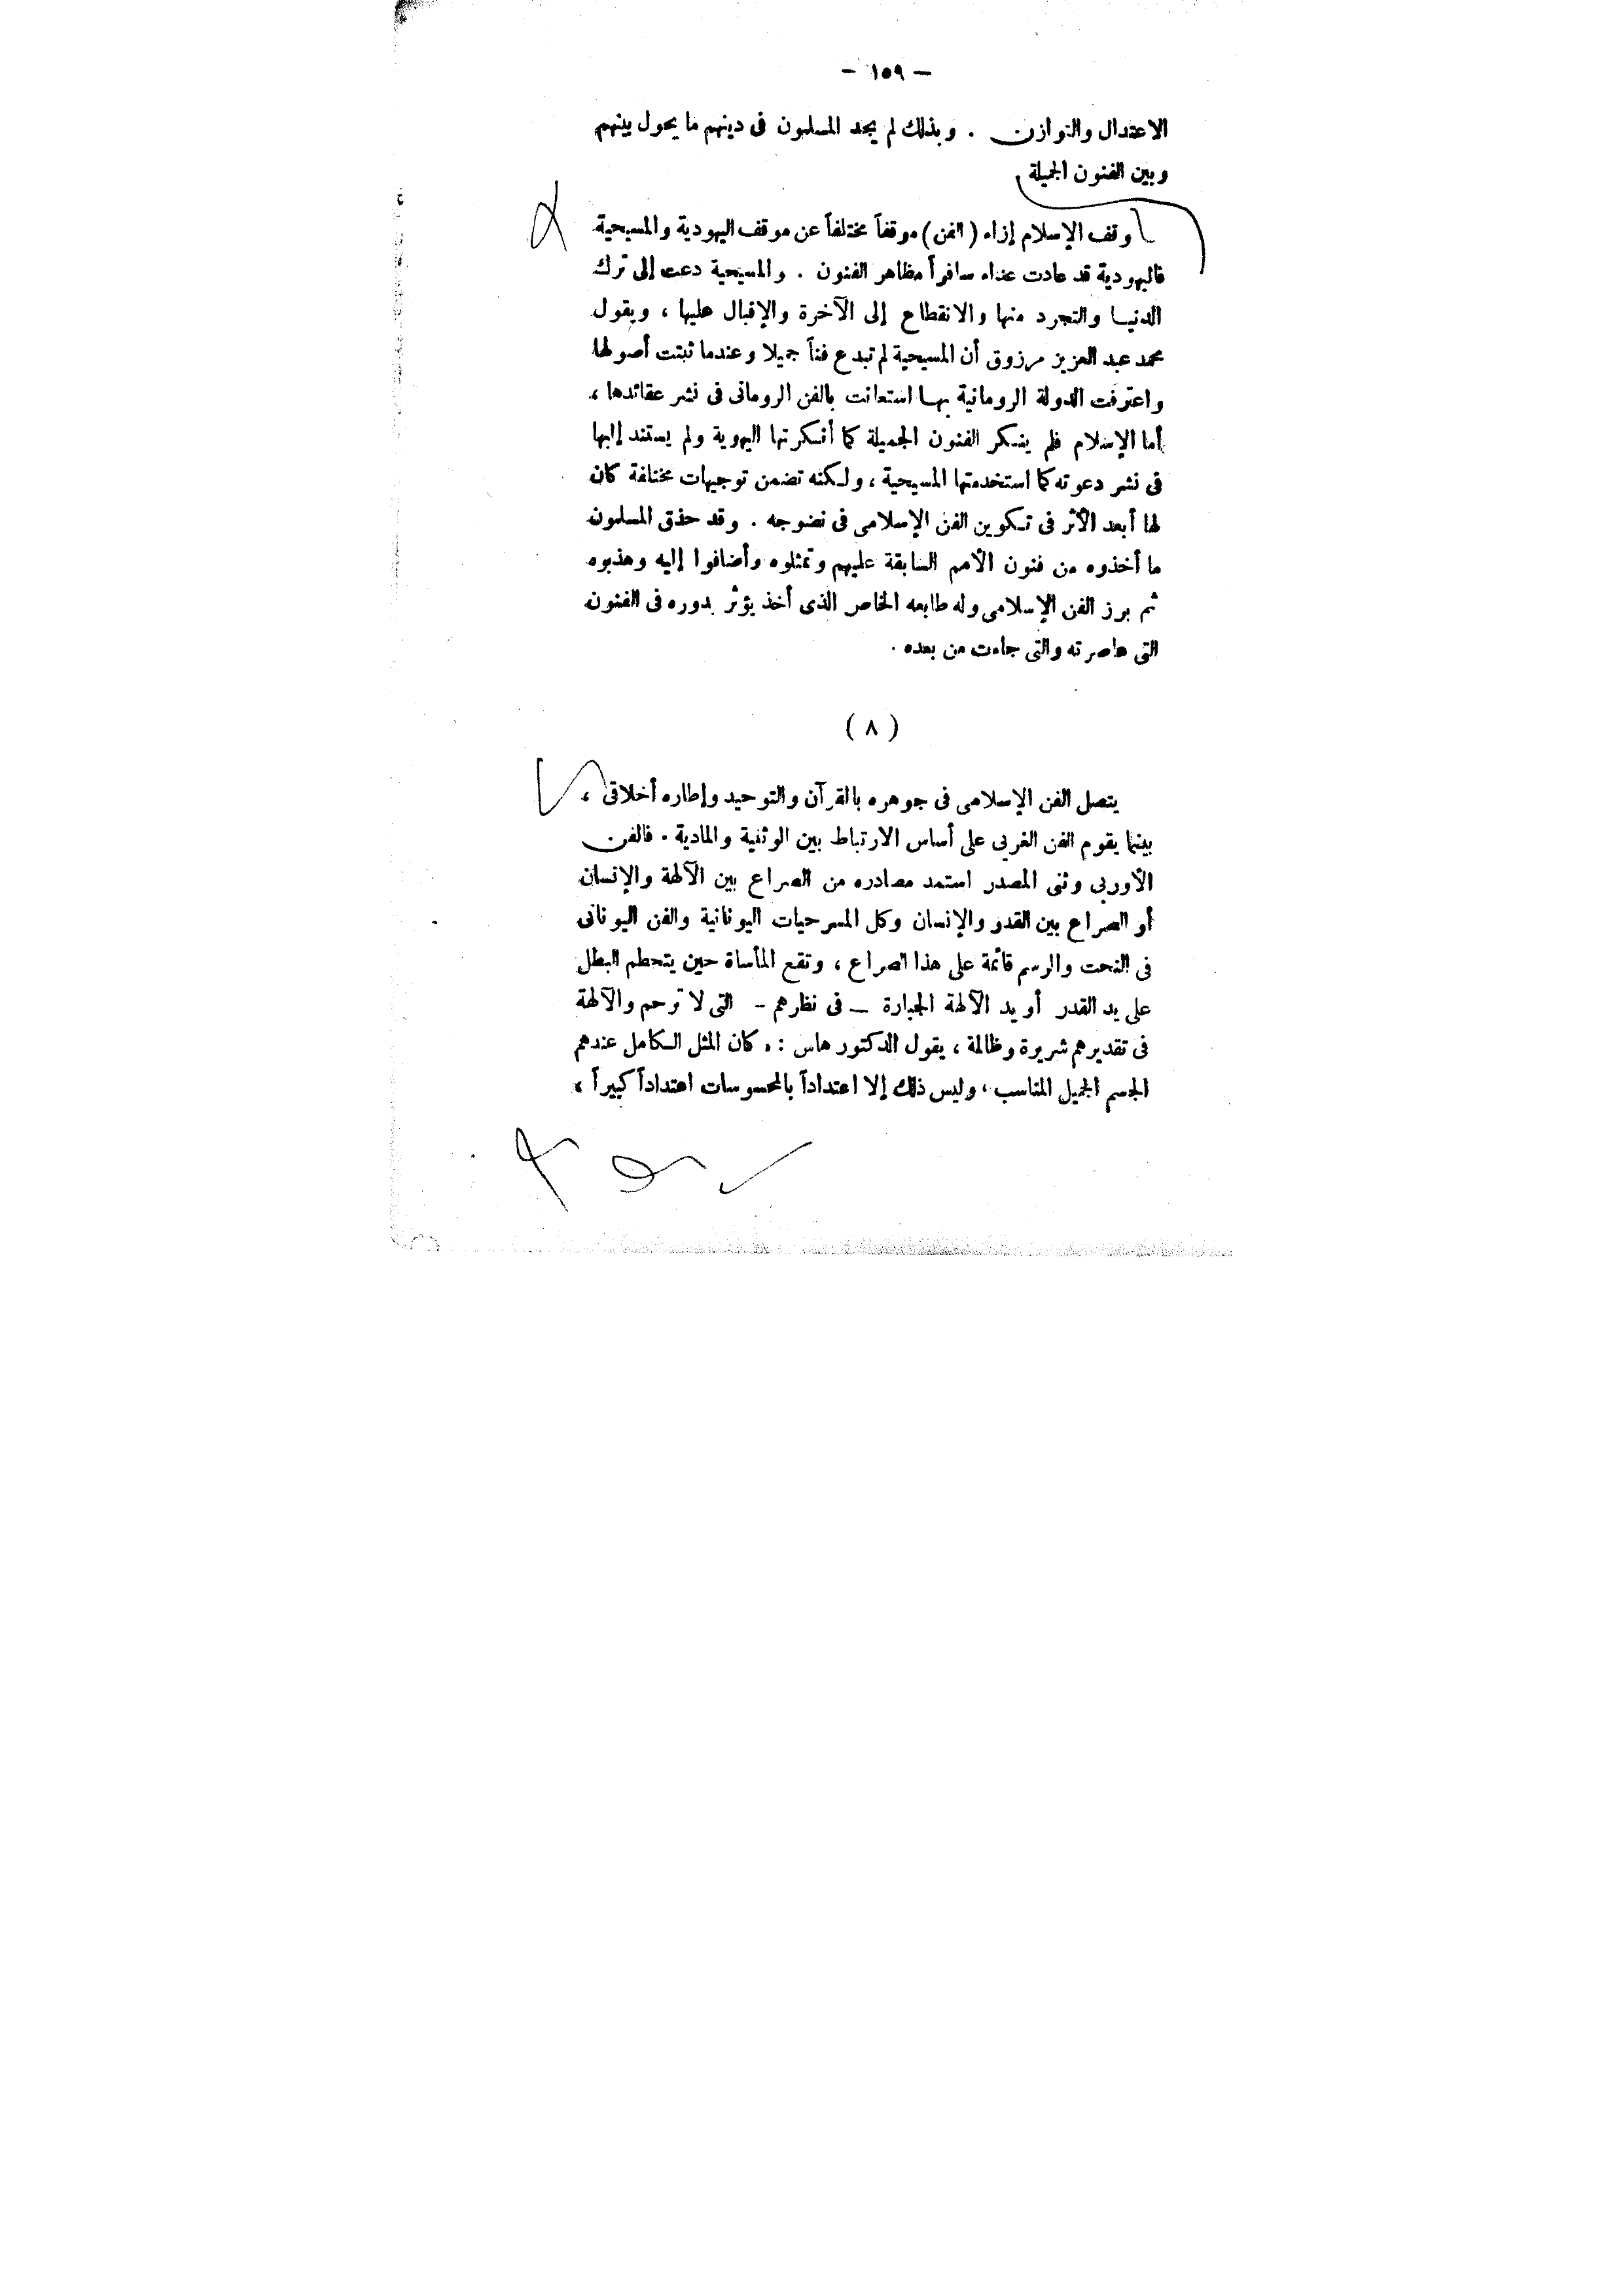 — ١٥٩ —
الاعتدال والتوازن . وبذلك لم يجد المسلمون فى دينهم ما يحول بينهم
وبين الفنون الجميلة
وقف الإسلام إزاء ( الفن ) موقفاً مختلفاً عن موقف اليهودية والمسيحية
فاليهودية قد عادت عداء سافراً مظاهر الفنون . والمسيحية دعت إلى ترك
الدنيا والتجرد منها والانقطاع إلى الآخرة والإقبال عليها ، ويقول
محمد عبد العزيز مرزوق أن المسيحية لم تبدع فناً جميلا وعندما ثبتت أصولها
واعترفت الدولة الرومانية بها استعانت بالفن الرومانى فى نشر عقائدها ،
أما الإسلام فلم ينكر الفنون الجميلة كما أنكرتها اليهوية ولم يستند إليها
فى نشر دعوته كما استخدمتها المسيحية ، ولكنه تضمن توجيهات مختلفة كان
لها أبعد الأثر فى تكوين الفن الإسلامى فى نضوجه . وقد حذق المسلمون
ما أخذوه من فنون الأمم السابقة عليهم وتمثلوه وأضافوا إليه وهذبوه
ثم برز الفن الإسلامى وله طابعه الخاص الذى أخذ يؤثر بدوره فى الفنون
التى عاصرته والتى جاءت من بعده .
( ٨ )
يتصل الفن الإسلامى فى جوهره بالقرآن والتوحيد وإطاره أخلاقى ،
بينما يقوم الفن الغربى على أساس الارتباط بين الوثنية والمادية . فالفن
الأوربى وثنى المصدر استمد مصادره من الصراع بين الآلهة والإنسان
أو الصراع بين القدر والإنسان وكل المسرحيات اليونانية والفن اليونانى
فى النحت والرسم قائمة على هذا الصراع ، وتقع المأساة حين يتحطم البطل
على يد القدر أو يد الآلهة الجبارة — فى نظرهم — التى لا ترحم والآلهة
فى تقديرهم شريرة وظالمة ، يقول الدكتور هاس : « كان المثل الكامل عندهم
الجسم الجميل المتناسب ، وليس ذلك إلا اعتداداً بالمحسوسات اعتداداً كبيراً ،